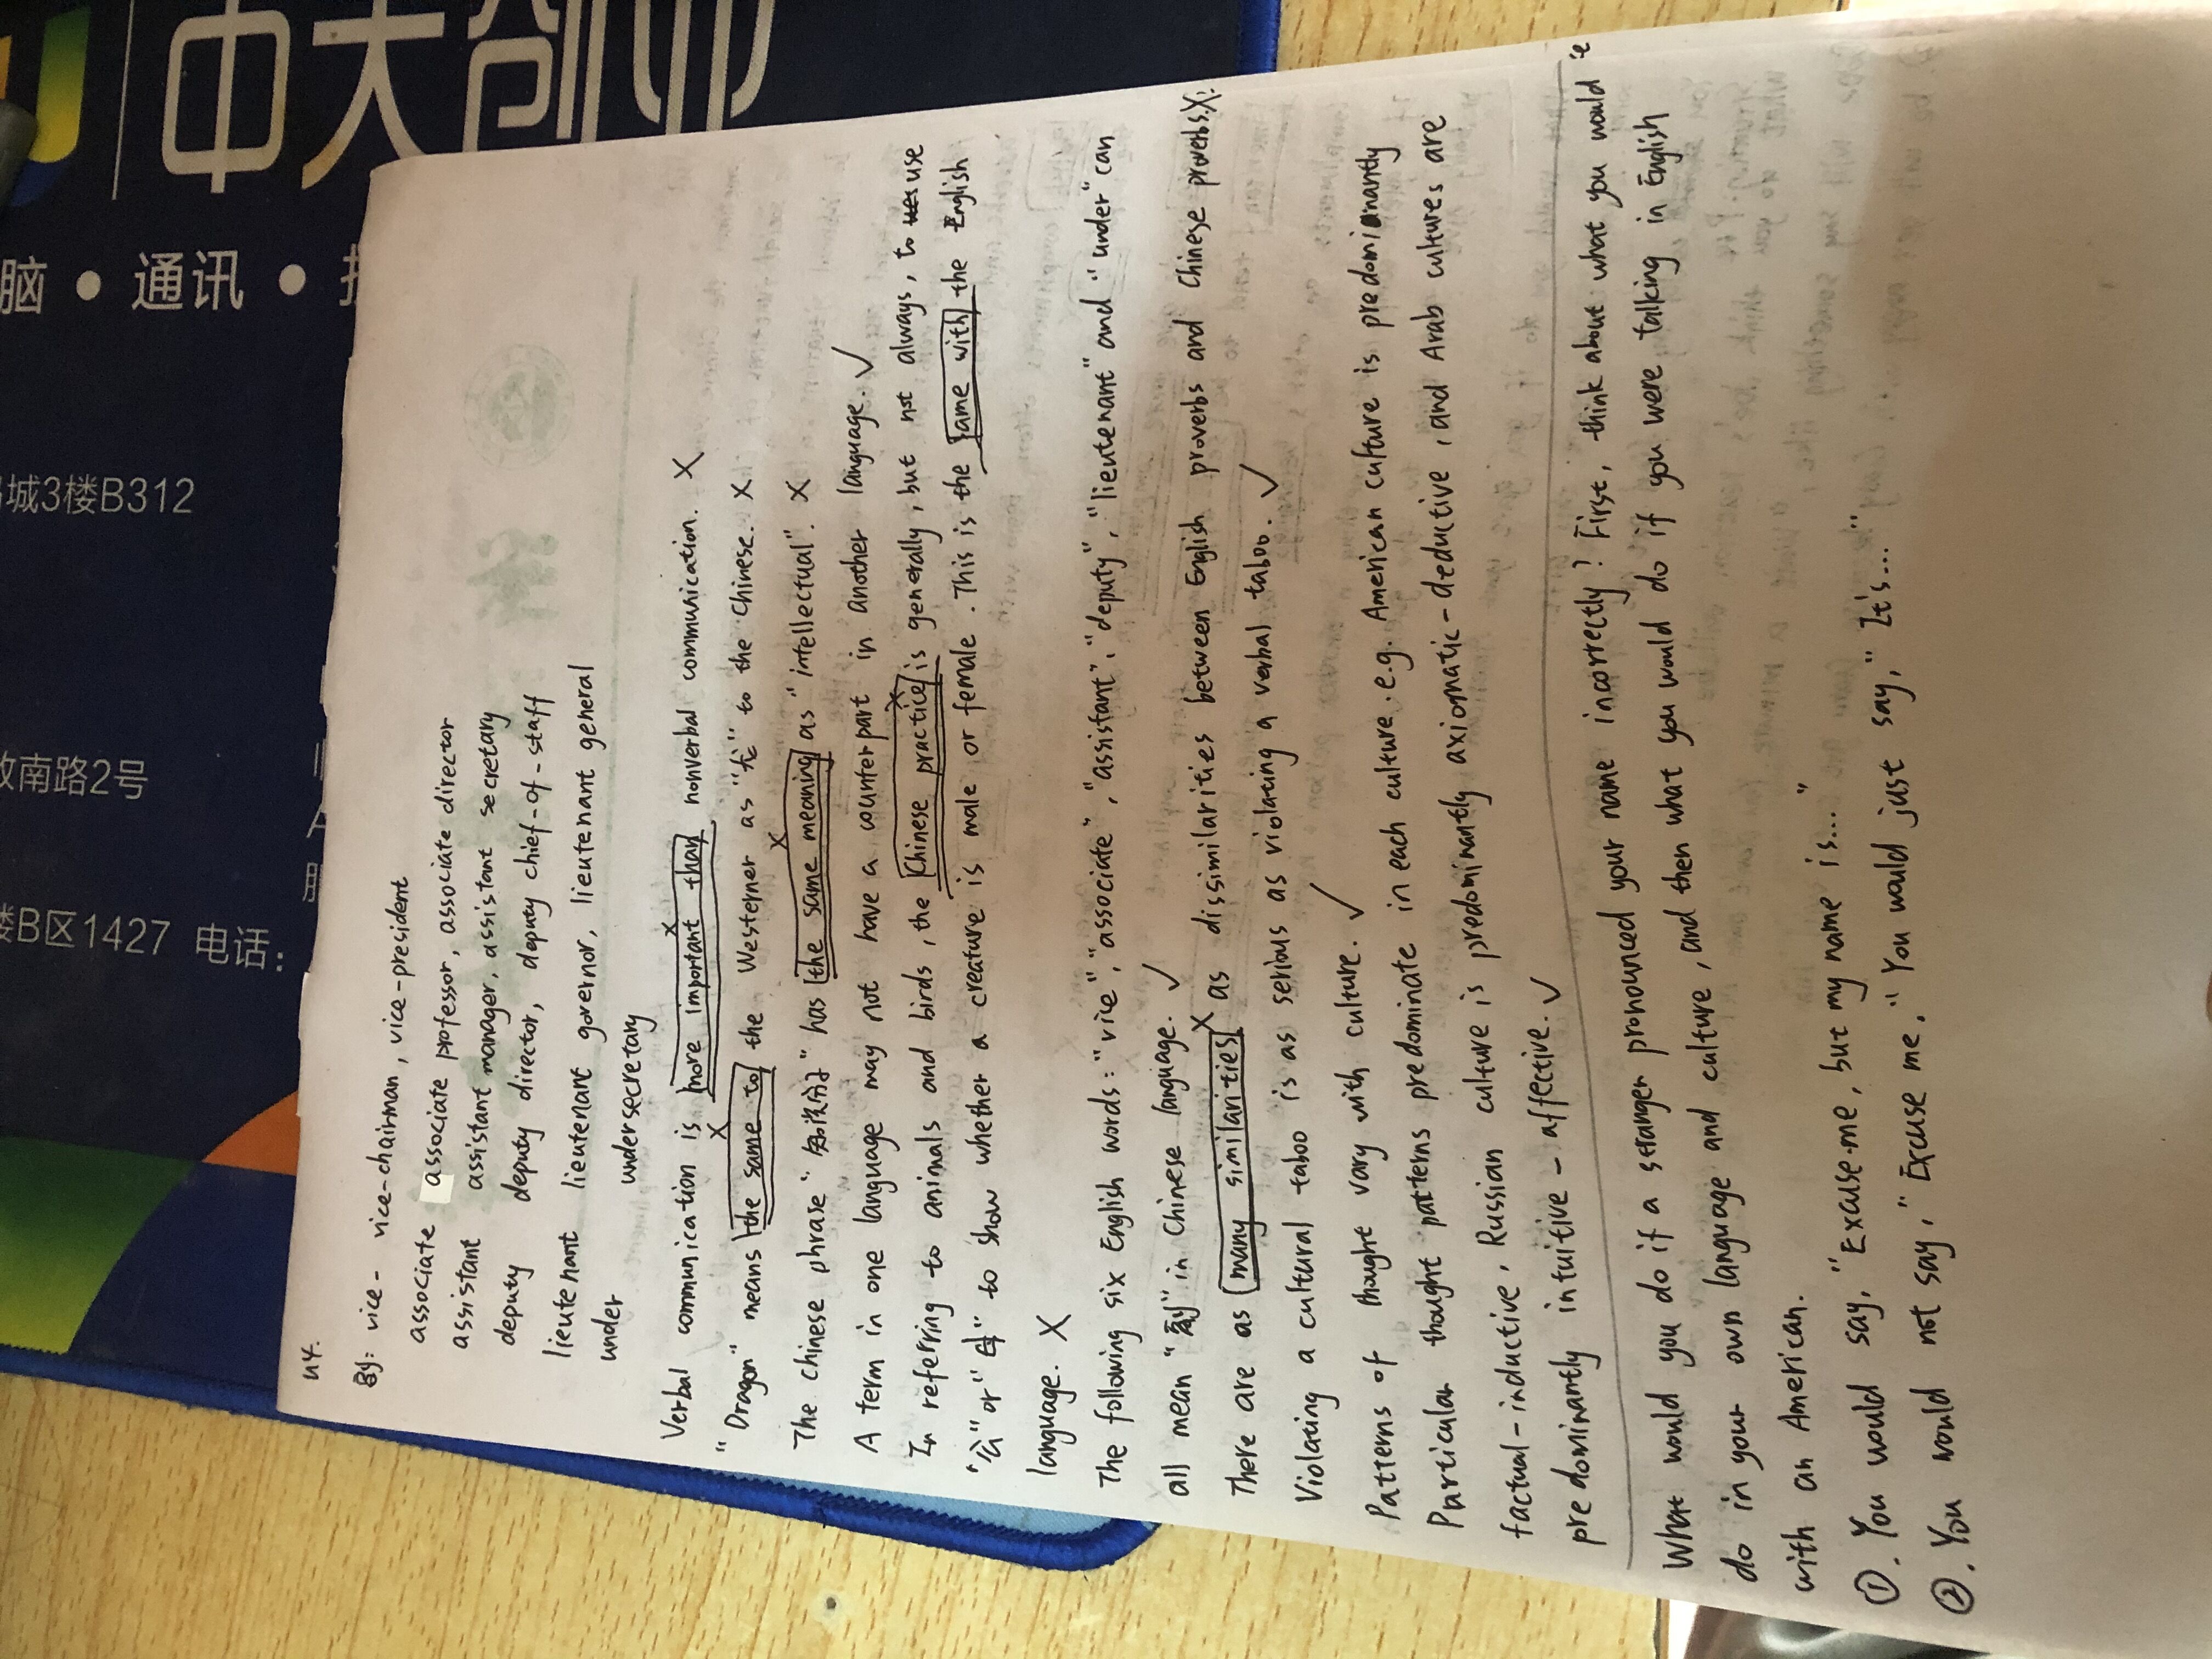 中大创
脑 • 通讯 •
城3楼B312
南路2号
楼B区1427 电话:
U4.
副: vice- vice-chairman, vice-president
associate associate professor, associate director
assistant assistant manager, assistant secretary
deputy deputy director, deputy chief-of-staff
lieutenant lieutenant governor, lieutenant general
under undersecretary
Verbal communication is more important than nonverbal communication. X
"Dragon" means the same to the Westerner as "龙" to the Chinese. X
The Chinese phrase "知识分子" has the same meaning as "intellectual". X
A term in one language may not have a counterpart in another language. ✓
In referring to animals and birds, the Chinese practice is generally, but not always, to use
"公" or "母" to show whether a creature is male or female. This is the same with the English
language. X
The following six English words: "vice", "associate", "assistant", "deputy", "lieutenant" and "under" can
all mean "副" in Chinese language. ✓
There are as many similarities as dissimilarities between English proverbs and Chinese proverbs. X
Violating a cultural taboo is as serious as violating a verbal taboo. ✓
Patterns of thought vary with culture. ✓
Particular thought patterns predominate in each culture. e.g. American culture is predominantly
factual-inductive, Russian culture is predominantly axiomatic-deductive, and Arab cultures are
predominantly intuitive-affective. ✓
What would you do if a stranger pronounced your name incorrectly? First, think about what you would
do in your own language and culture, and then what you would do if you were talking in English
with an American.
①. You would say, "Excuse me, but my name is...."
②. You would not say, "Excuse me." You would just say, "It's...."